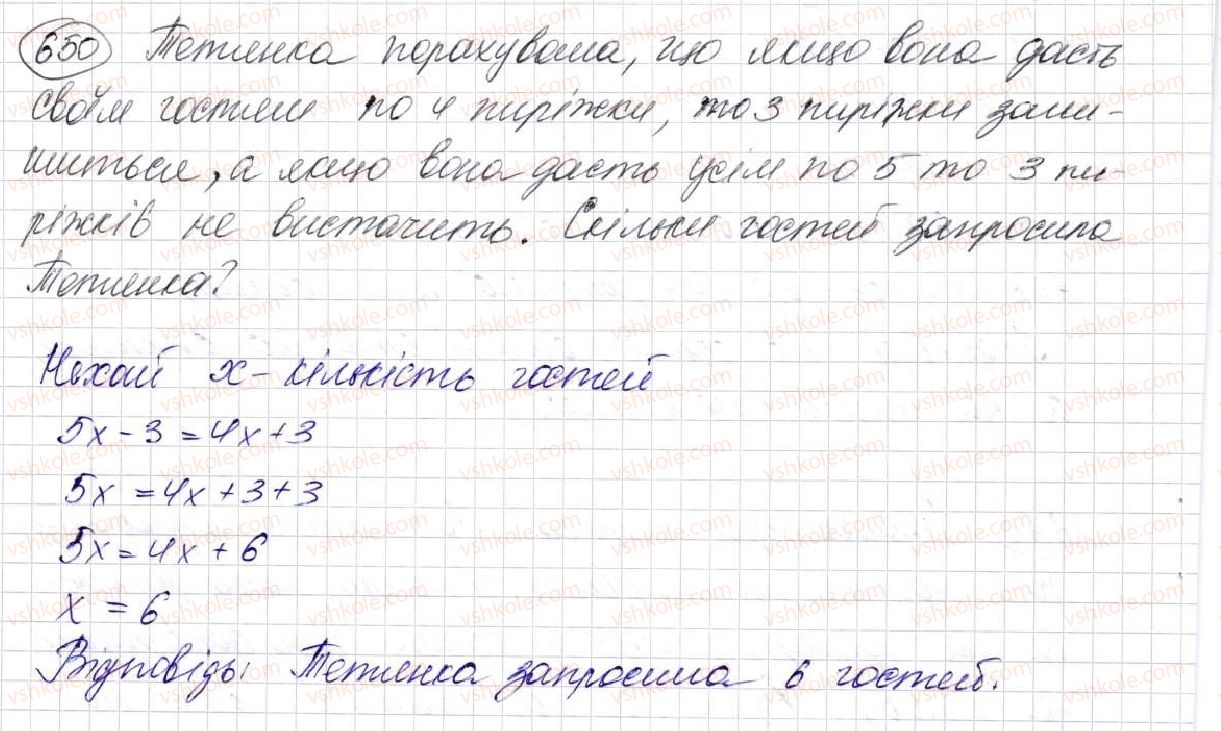 650 Тетянка порахувала, що якщо вона дасть
своїм гостям по 4 пиріжки, то 3 пиріжки зали-
шиться, а якщо вона дасть усім по 5 то 3 пи-
ріжків не вистачить. Скільки гостей запросила
Тетянка?
Нехай x - кількість гостей
5x - 3 = 4x + 3
5x = 4x + 3 + 3
5x = 4x + 6
x = 6
Відповідь: Тетянка запросила 6 гостей.